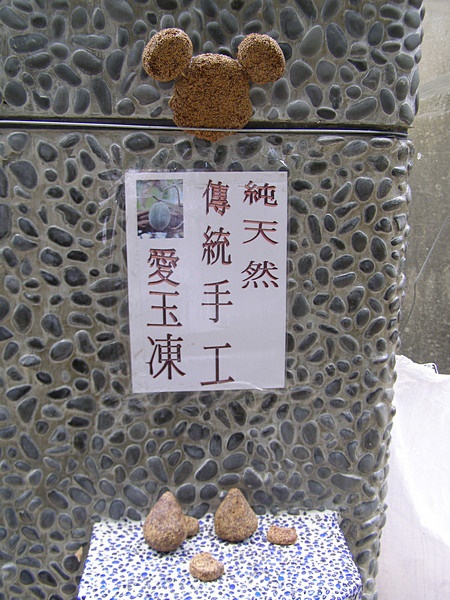 純天然
傳統手工
愛玉凍